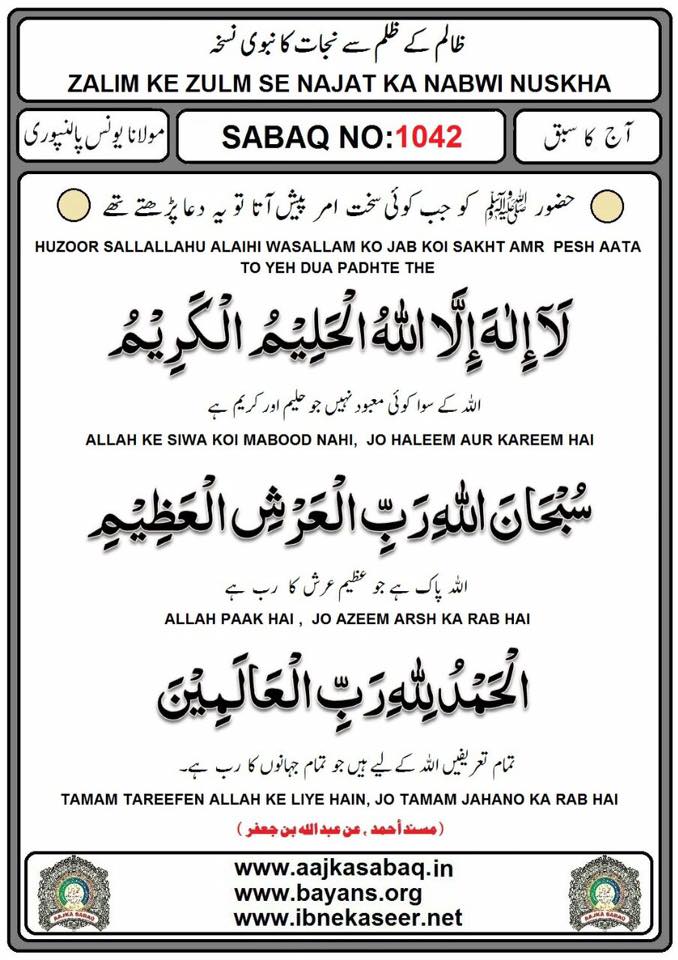 ظالم کے ظلم سے نجات کا نبوی نسخہ
ZALIM KE ZULM SE NAJAT KA NABWI NUSKHA
آج کا سبق
SABAQ NO:1042
مولانا یونس پالنپوری
حضور ﷺ کو جب کوئی سخت امر پیش آتا تو یہ دعا پڑھتے تھے
HUZOOR SALLALLAHU ALAIHI WASALLAM KO JAB KOI SAKHT AMR PESH AATA
TO YEH DUA PADHTE THE
لَآ إِلٰهَ إِلَّا اللهُ الْحَلِيْمُ الْكَرِيْمُ
اللہ کے سوا کوئی معبود نہیں جو حلیم اور کریم ہے
ALLAH KE SIWA KOI MABOOD NAHI, JO HALEEM AUR KAREEM HAI
سُبْحَانَ اللهِ رَبِّ الْعَرْشِ الْعَظِيْمِ
اللہ پاک ہے جو عظیم عرش کا رب ہے
ALLAH PAAK HAI , JO AZEEM ARSH KA RAB HAI
الْحَمْدُ لِلهِ رَبِّ الْعَالَمِيْنَ
تمام تعریفیں اللہ کے لیے ہیں جو تمام جہانوں کا رب ہے۔
TAMAM TAREEFEN ALLAH KE LIYE HAIN, JO TAMAM JAHANO KA RAB HAI
(مسند أحمد , عن عبد الله بن جعفر)
www.aajkasabaq.in
www.bayans.org
www.ibnekaseer.net
AAJKA SABAQ
AAJKA SABAQ